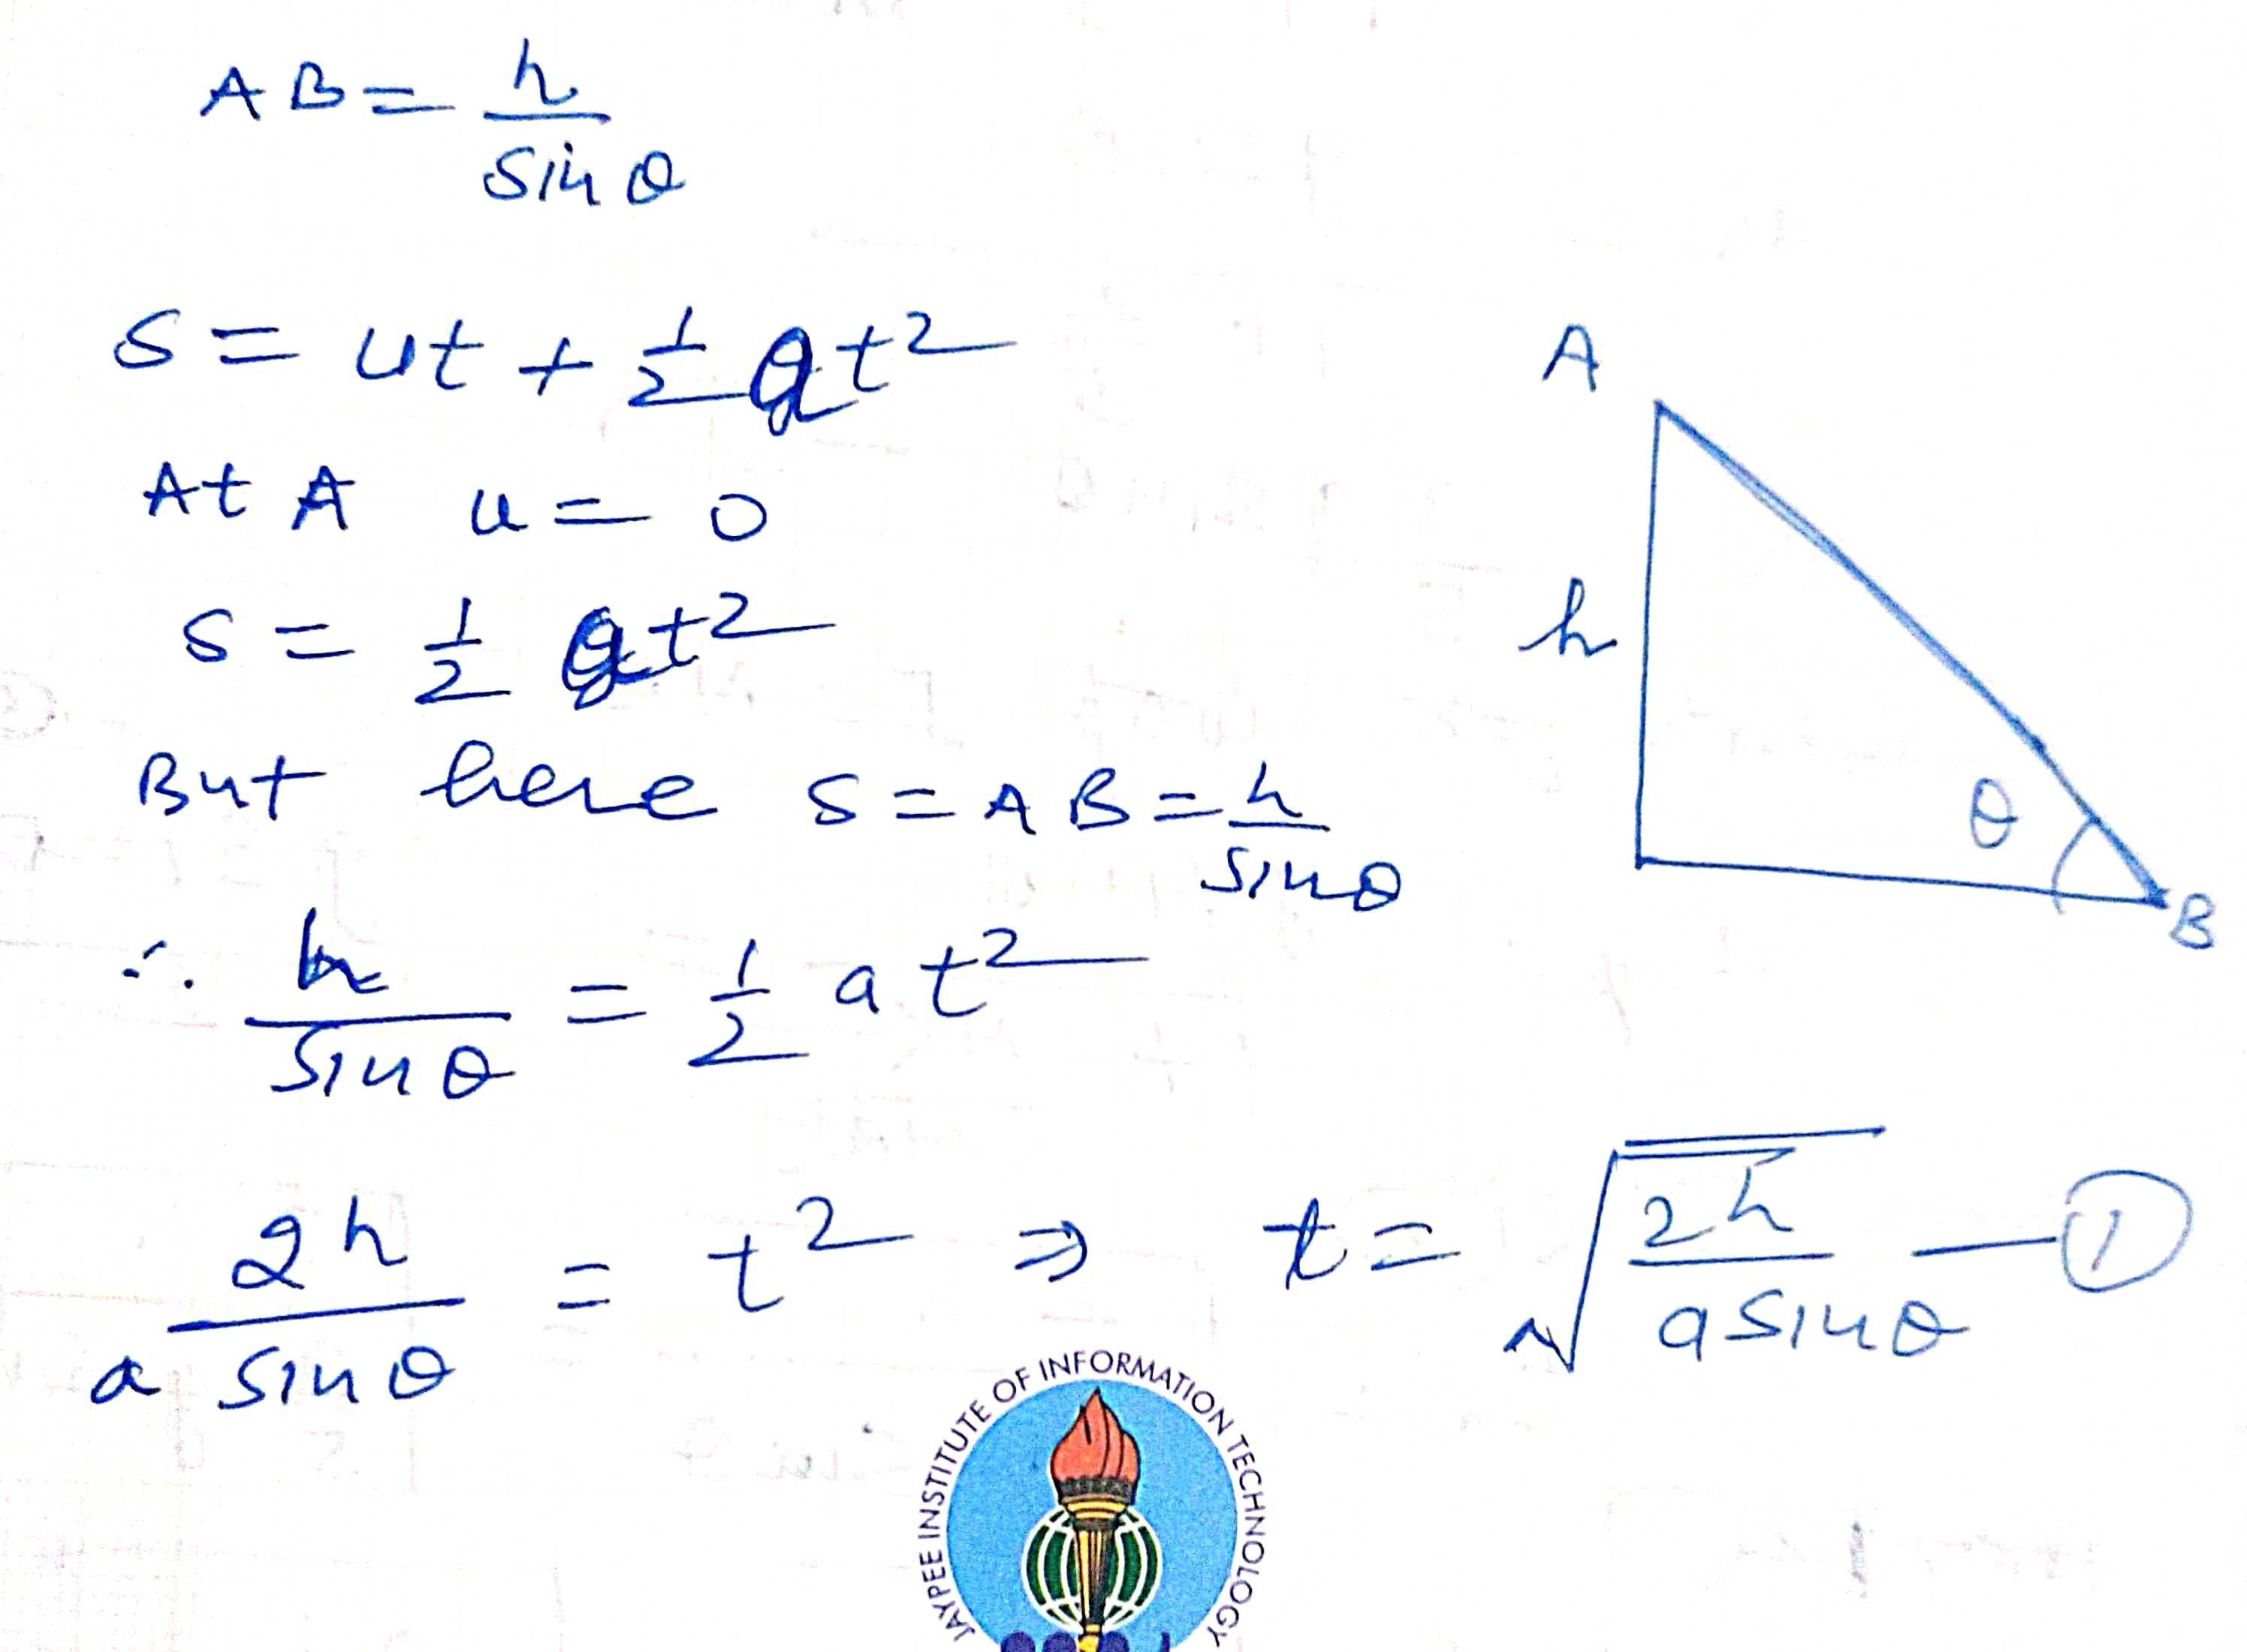 AB = h/sinθ
S = ut + 1/2 at²
At A u = 0
S = 1/2 at²
But here S = AB = h/sinθ
∴ h/sinθ = 1/2 at²
2h/a sinθ = t² ⇒ t = √(2h/a sinθ) — ①
A
h
θ
B
JAYPEE INSTITUTE OF INFORMATION TECHNOLOGY